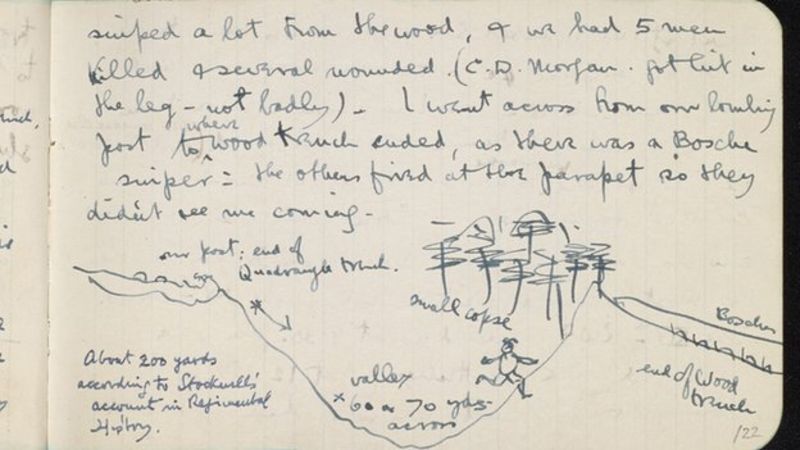 sniped a lot from the wood, & we had 5 men
killed & several wounded. (C.D. Morgan got hit in
the leg – not badly) – I went across from our bombing
post to where wood trench ended, as there was a Bosche
sniper: the others fired at the parapet so they
didn't see me coming –
our post: end of
Quadrangle trench.
small copse
Bosches
end of Wood
trench
valley
× 60 or 70 yds
across
About 200 yards
according to Stockwell's
account in Regimental
History.
/22